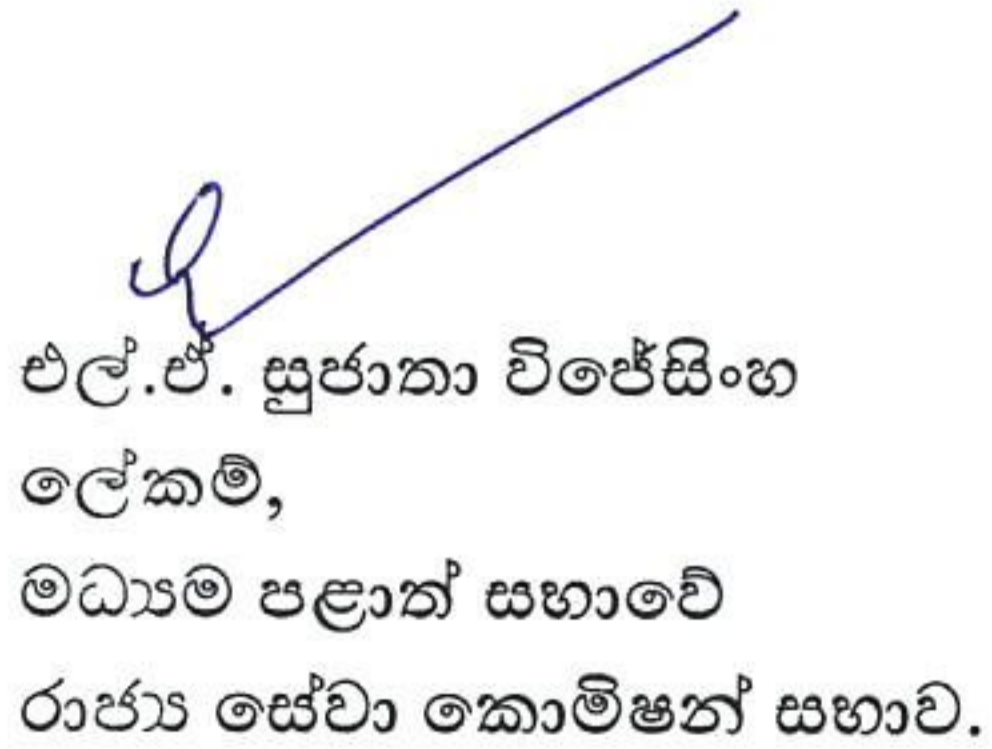 එල්.ඒ. සුජාතා විජේසිංහ
ලේකම්,
මධ්‍යම පළාත් සභාවේ
රාජ්‍ය සේවා කොමිෂන් සභාව.